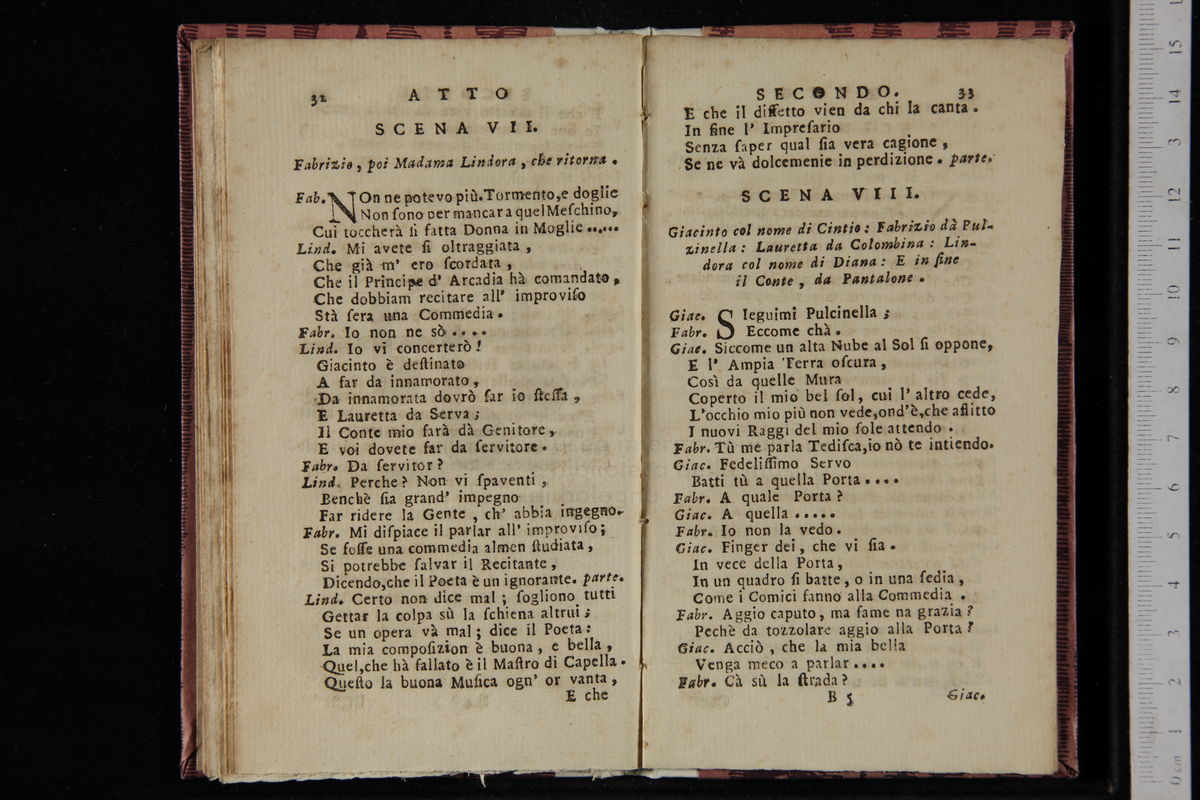 32 ATTO
SCENA VII.
Fabrizio, poi Madama Lindora, che ritorna.
Fab. NOn ne potevo più. Tormento, e doglie
Non ſono per mancar a quel Meſchino,
Cui toccherà ſi fatta Donna in Moglie......
Lind. Mi avete ſi oltraggiata,
Che già m' ero ſcordata,
Che il Principe d' Arcadia hà comandato,
Che dobbiam recitare all' improviſo
Stà ſera una Commedia.
Fabr. Io non ne sò....
Lind. Io vi concerterò!
Giacinto è deſtinato
A far da innamorato,
Da innamorata dovrò far io ſteſſa,
E Lauretta da Serva;
Il Conte mio farà dà Genitore,
E voi dovete far da ſervitore.
Fabr. Da ſervitor?
Lind. Perche? Non vi ſpaventi,
Benchè ſia grand' impegno
Far ridere la Gente, ch' abbia ingegno.
Fabr. Mi diſpiace il parlar all' improviſo;
Se foſſe una commedia almen ſtudiata,
Si potrebbe ſalvar il Recitante,
Dicendo, che il Poeta è un ignorante. parte.
Lind. Certo non dice mal; ſogliono tutti
Gettar la colpa sù la ſchiena altrui;
Se un opera và mal; dice il Poeta:
La mia compoſizion è buona, e bella,
Quel, che hà fallato è il Maſtro di Capella.
Queſto la buona Muſica ogn' or vanta,
E che
SECONDO. 33
E che il diffetto vien da chi la canta.
In fine l' Impreſario
Senza ſaper qual ſia vera cagione,
Se ne và dolcemenie in perdizione. parte.
SCENA VIII.
Giacinto col nome di Cintio: Fabrizio dà Pul-
zinella: Lauretta da Colombina: Lin-
dora col nome di Diana: E in fine
il Conte, da Pantalone.
Giac. SIeguimi Pulcinella;
Fabr. Eccome chà.
Giac. Siccome un alta Nube al Sol ſi oppone,
E l' Ampia Terra oſcura,
Così da quelle Mura
Coperto il mio bel ſol, cui l' altro cede,
L'occhio mio più non vede, ond'è, che aflitto
I nuovi Raggi del mio ſole attendo.
Fabr. Tù me parla Tediſca, io nò te intiendo.
Giac. Fedeliſſimo Servo
Batti tù a quella Porta....
Fabr. A quale Porta?
Giac. A quella.....
Fabr. Io non la vedo.
Giac. Finger dei, che vi ſia.
In vece della Porta,
In un quadro ſi batte, o in una ſedia,
Come i Comici fanno alla Commedia.
Fabr. Aggio caputo, ma fame na grazia?
Pechè da tozzolare aggio alla Porta?
Giac. Acciò, che la mia bella
Venga meco a parlar....
Fabr. Cà sù la ſtrada?
B 5 Giac.
15
14
13
12
11
10
9
8
7
6
5
4
3
2
1
0 cm